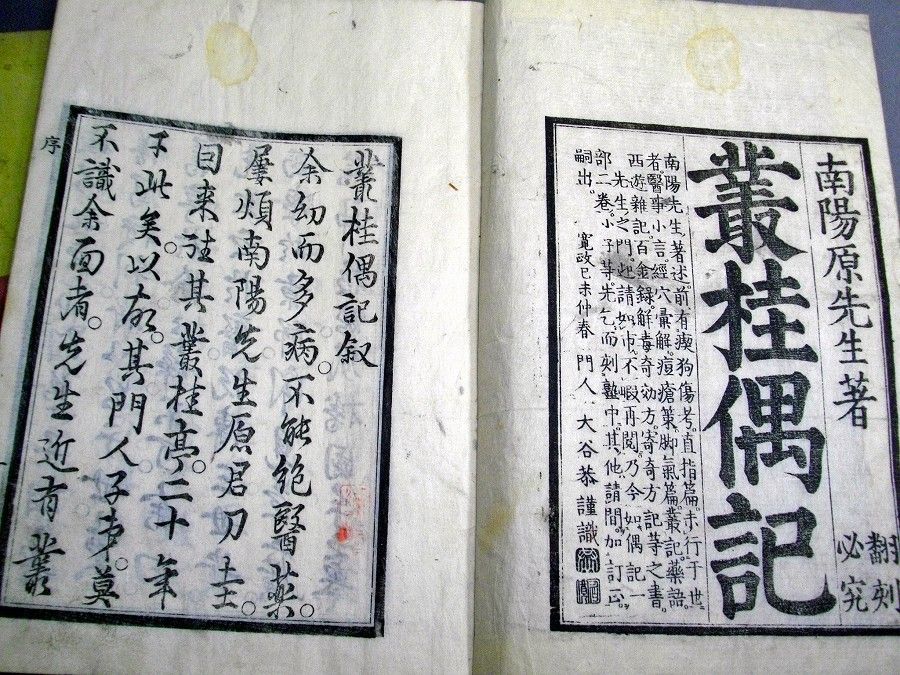 南陽原先生著
翻刻
必究
叢桂偶記
南陽先生著述。前有瘈狗傷考。直指篇。未行于世
者。醫事小言。經穴彙解。痘瘡策。脚氣篇。叢記藥語。
西遊雜記。百金錄解毒奇効方。寄奇方記等之書。
先生之門。迎請如市。不暇再閲。乃今如偶記一
部二卷。小子等先乞而刻塾中。其他請間加訂正。
嗣出。 寛政己未仲春 門人 大谷恭謹識
叢桂偶記叙
余幼而多病。不能絶醫藥。
屢煩南陽先生原君刀圭。
日来往其叢桂亭。二十年
于此矣。以故。其門人子弟。莫
不識余面者。先生近有叢
序